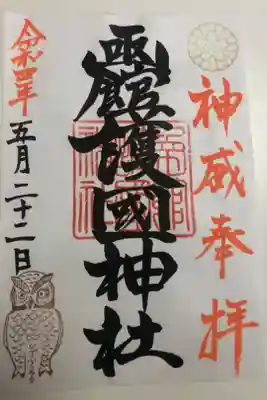 神威奉拝
函館護國神社
令和四年
五月二十二日